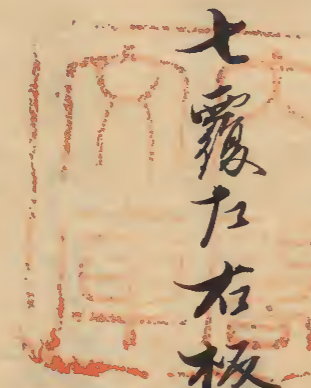 七覆左右板